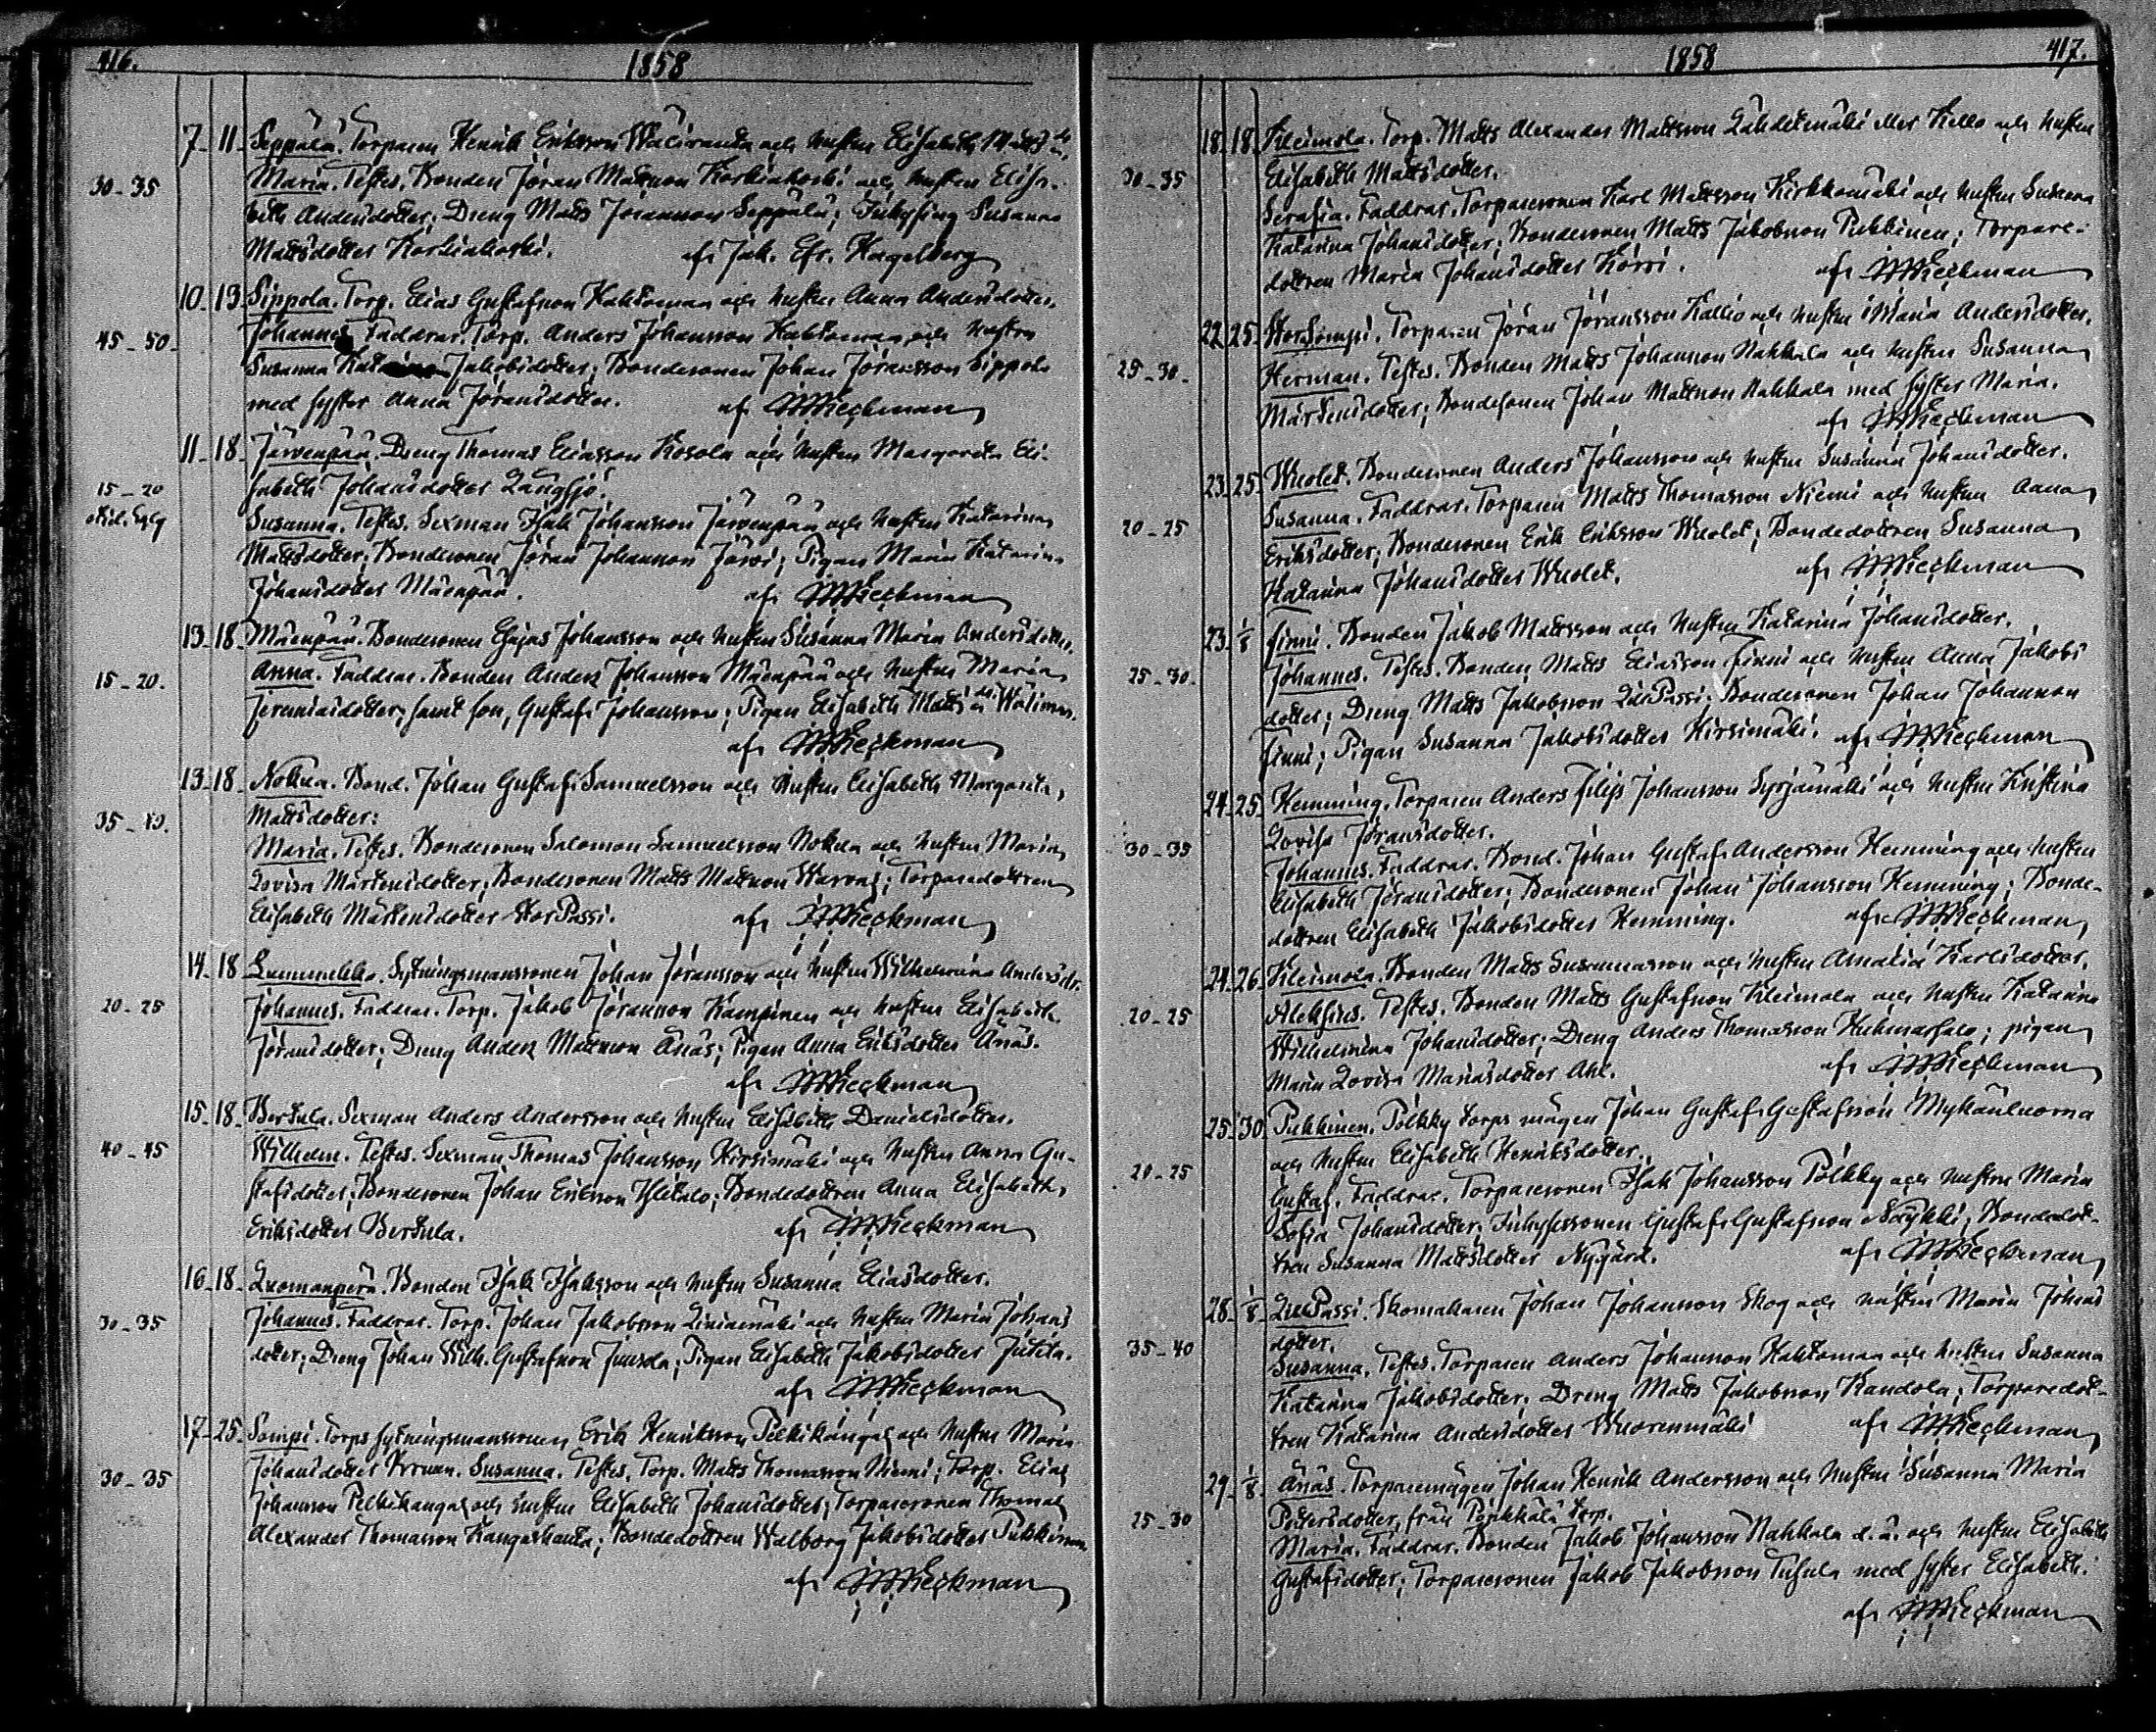 416.
1858
7 11 Seppälä. Torparen Henrik Eriksson Wäliranta och hustru Elisabeth Matts dr.
30-35 Maria. Testes. Bonden Jöran Mattsson Korkiakoski och hustru Elisa-
beth Andersdotter; Dreng Matts Jöransson Seppälä; Inhysing Susanna
Mattsdotter Korkiakoski. af Jak. Efr. Hagelberg
10 13 Sippola. Torp. Elias Gustafsson Hahtomaa och hustru Anna Andersdotter.
45-50 Johannes. Faddrar. Torp. Anders Johansson Hahtomaa och hustru
Susanna Jakobsdotter; Bondesonen Johan Jöransson Sippola
med syster Anna Jöransdotter. af Heckman
11 18 Järvenpää. Dreng Thomas Eliasson Kosola och hustru Margareta Eli-
15-20 sabeth Johansdotter Långsjö.
Susanna. Testes. Sexman Isak Johansson Järvenpää och hustru Katarina
Mattsdotter; Bondesonen Jöran Johansson Järvi; Pigan Maria Katarina
Johansdotter Mäenpää. af Heckman
13 18 Mäenpää. Bondesonen Johansson och hustru Susanna Maria Andersdotter.
15-20. Anna. Faddrar. Bonden Anders Johansson Mäenpää och hustru Maria
Jeremiasdotter, samt son, Gustaf Johansson; Pigan Elisabeth Matts dr
af Heckman
13 18 Nokua. Bond. Johan Gustaf Samuelsson och hustru Elisabeth Margareta
35-40. Mattsdotter:
Maria. Testes. Bondesonen Salomon Samuelsson Nokua och hustru Maria
Lovisa Mårtensdotter; Bondesonen Matts Mattsson; Torparedottren
Elisabeth Mårtensdotter StorPassi. af Heckman
14 18 Lummukka. Sytningsmanssonen Johan Jöransson och hustru Wilhelmina Andersdr.
20-25 Johannes. Faddrar. Torp. Jakob Jöransson Kampinen och hustru Elisabeth
Jöransdotter; Dreng Anders Mattsson Änäs; Pigan Anna Eriksdotter Änäs.
af Heckman
15 18 Bertula. Sexman Anders Andersson och hustru Elisabeth Danielsdotter.
40-45 Wilhelm. Testes. Sexman Thomas Johansson Hirsimäki och hustru Anna Gu-
stafsdotter; Bondesonen Johan Eriksson Ylitalo; Bondedottren Anna Elisabeth
Eriksdotter Bertula. af Heckman
16 18 Luomanperä. Bonden Isak Isaksson och hustru Susanna Eliasdotter.
30-35 Johannes. Faddrar. Torp. Johan Jakobsson Liniamäki och hustru Maria Johans
dotter; Dreng Johan Wilh. Gustafsson Jussila; Pigan Elisabeth Jakobsdotter Jutila.
af Heckman
17 25 Sompi. Torps sytningsmanssonen Erik Henriksson Pelkikangas och hustru Maria
Johansdotter. Susanna. Testes. Torp. Matts Thomasson Niemi; Torp. Elias
30-35 Johansson Pelkikangas och hustru Elisabeth Johansdotter; Torparesonen Thomas
Alexander Thomasson Kangashauta; Bondedottren Walborg Jakobsdotter Pukkinen.
af Heckman
1858 417.
18 18 Kleimola. Torp. Matts Alexander Mattsson Lähdetmäki eller Kello och hustru
30-35 Elisabeth Mattsdotter.
Serafia. Faddrar. Torparesonen Karl Mattsson Kirkkomäki och hustru Susanna
Katarina Johansdotter; Bondesonen Matts Jakobsson Pukkinen; Torpare-
dottren Maria Johansdotter Körri. af Heckman
22 25 StorSompi. Torparen Jöran Jöransson Kallio och hustru Maria Andersdotter.
25-30. Herman. Testes. Bonden Matts Johansson Nahkala och hustru Susanna
Mårtensdotter; Bondesonen Johan Mattsson Nahkala med syster Maria.
af Heckman
23 25 Wuolet. Bondesonen Anders Johansson och hustru Susanna Johansdotter.
20-25 Susanna. Faddrar. Torparen Matts Thomasson Niemi och hustru Anna
Eriksdotter; Bondesonen Erik Eriksson Wuolet; Bondedottren Susanna
Katarina Johansdotter Wuolet. af Heckman
23 1/8 Finni. Bonden Jakob Mattsson och hustru Katarina Johansdotter.
25-30. Johannes. Testes. Bonden Matts Eliasson Finni och hustru Anna Jakobs
dotter; Dreng Matts Jakobsson LillPassi; Bondesonen Johan Johansson
Finni; Pigan Susanna Jakobsdotter Hirsimäki. af Heckman
24 25 Hemming. Torparen Anders Filip Johansson Syrjämäki och hustru Kristina
30-35 Lovisa Jöransdotter.
Johannes. Faddrar. Bond. Johan Gustaf Andersson Hemming och hustru
Elisabeth Jöransdotter; Bondesonen Johan Johansson Hemming; Bonde-
dottren Elisabeth Jakobsdotter Hemming. af Heckman
24 26 Kleimola. Bonden Matts Susannasson och hustru Amalia Karlsdotter.
20-25 Aleksius. Testes. Bonden Matts Gustafsson Kleimola och hustru Katarina
Wilhelmina Johansdotter; Dreng Anders Thomasson Huhmarsalo; pigan
Maria Lovisa Mariasdotter Ahl. af Heckman
25 30 Pukkinen. Pölkky torps mågen Johan Gustaf Gustafsson Mykänluoma
och hustru Elisabeth Henriksdotter.
20-25 Gustaf. Faddrar. Torparesonen Isak Johansson Pölkky och hustru Maria
Sofia Johansdotter; Inhysessonen Gustaf Gustafsson Näykki; Bondedot-
tren Susanna Mattsdotter Nygård. af Heckman
28 1/8 LillPassi. Skomakaren Johan Johansson Skog och hustru Maria Johans
35-40 dotter.
Susanna. Testes. Torparen Anders Johansson Hahtomaa och hustru Susanna
Katarina Jakobsdotter; Dreng Matts Jakobsson Kandola; Torparedot-
tren Katarina Andersdotter Wuorenmäki af Heckman
29 1/8 Änäs. Torparemågen Johan Henrik Andersson och hustru Susanna Maria
25-30 Pettersdotter, från torp.
Maria. Faddrar. Bonden Jakob Johansson Nahkala d.ä. och hustru Elisabeth
Gustafsdotter; Torparesonen Jakob Jakobsson Tusula med syster Elisabeth.
af Heckman